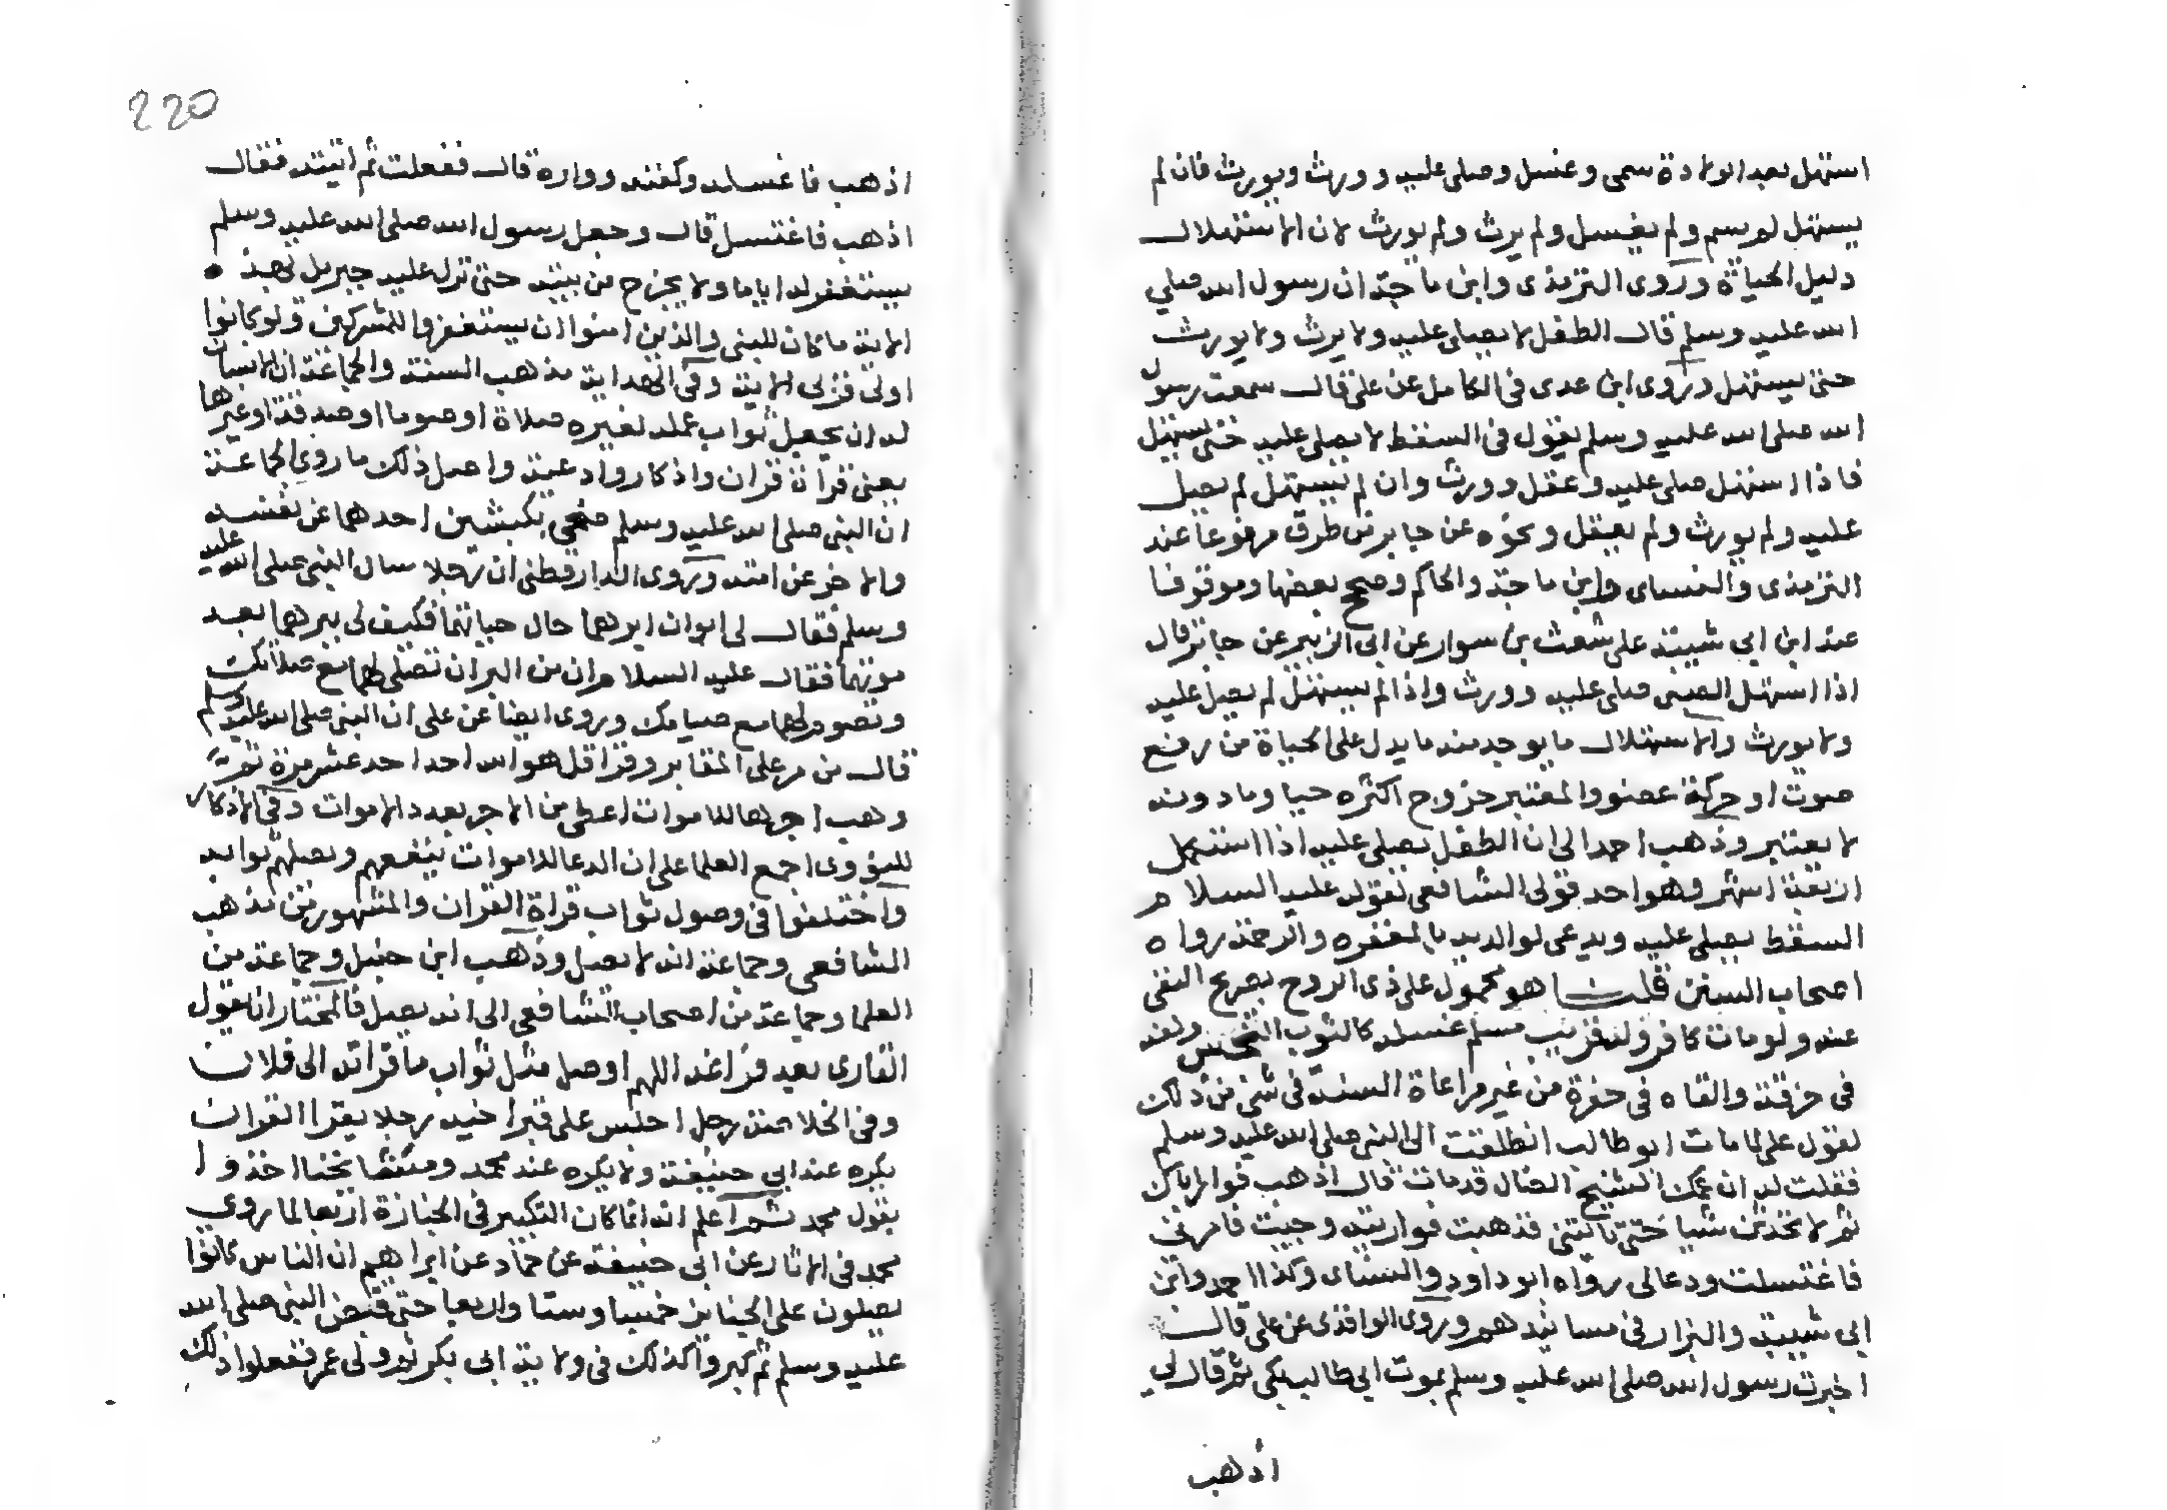 استهل بعد الولادة سمى وغسل وصلى عليه وورث ويورث فان لم
يستهل لم يسم ولم يغسل ولم يرث ولم يورث لان الاستهلال
دليل الحياة وروى الترمذى وابن ماجة ان رسول الله صلي
الله عليه وسلم قال الطفل لا يصلى عليه ولا يرث ولا يورث
حتى يستهل وروى ابن عدى فى الكامل عن على قال سمعت رسول
الله صلى الله عليه وسلم يقول فى السقط لا يصلى عليه حتى يستهل
فاذا استهل صلى عليه وعقل وورث وان لم يستهل لم يصل
عليه ولم يورث ولم يعقل ونحوه عن جابر من طرق مرفوعا عند
الترمذى والنساى وابن ماجة والحاكم وصحح بعضها وموقوفا
عند ابن ابي شيبة على شعث بن سوار عن ابى الزبير عن جابر قال
اذا استهل الصبى صلى عليه وورث واذا لم يستهل لم يصل عليه
ولا يورث والاستهلال ما يوجد منه ما يدل على الحياة من رفع
صوت او حركة عضو والمعتبر خروج اكثره حيا وما دونه
لا يعتبر وذهب احمد الى ان الطفل يصلى عليه اذا استكمل
اربعة اشهر وهو احد قولى الشافعى لقوله عليه السلام
السقط يصلى عليه ويدعى لوالديه بالمغفره والرحمة رواه
اصحاب السنن قلنا هو محمول على ذى الروح بصريح النفى
عنه ولو مات كافر ولقريب مسلم غسله كالثوب النجس ولفه
فى خرقة والقاه فى حفرة من غير مراعاة السنة فى شى من ذلك
لقول على لما مات ابو طالب انطلقت الى النبى صلى الله عليه وسلم
فقلت له ان عمك الشيخ الضال قد مات قال اذهب فوار اباك
ثم لا تحدثن شيا حتى تاتينى فذهبت فواريته وجيت فامرنى
فاغتسلت ودعا لى رواه ابو داود والنساى وكذا احمد وابن
ابى شيبة والبزار فى مسانيدهم وروى الواقدى عن على قال
اخبرت رسول الله صلى الله عليه وسلم بموت ابى طالب بكى ثم قال لي
اذهب
220
اذهب فاغسله وكفنه وواره قال ففعلت ثم اتيته فقال
اذهب فاغتسل قال وجعل رسول الله صلى الله عليه وسلم
يستغفر له اياما ولا يخرج من بيته حتى نزل عليه جبريل بهذه
الاية ما كان للنبى والذين امنوا ان يستغفروا للمشركين ولو كانوا
اولى قربى الاية وفى الهداية مذهب السنة والجماعة ان الانسان
له ان يجعل ثواب عمله لغيره صلاة او صوما او صدقة او غيرها
يعنى قراة قران واذكار وادعية واصل ذلك ما روى الجماعة
ان النبى صلى الله عليه وسلم ضحى بكبشين احدهما عن نفسه
والاخر عن امته وروى الدارقطنى ان رجلا سال النبى صلى الله عليه
وسلم فقال لى ابوان ابرهما حال حياتهما فكيف لى ببرهما بعد
موتهما فقال عليه السلام ان من البر ان تصلى لهما مع صلاتك
وتصوم لهما مع صيامك وروى ايضا عن على ان النبى صلى الله عليه وسلم
قال من مر على المقابر وقرا قل هو الله احد احد عشر مرة ثم
وهب اجرها للاموات اعطى من الاجر بعدد الاموات وفى الاذكار
للنووى اجمع العلما على ان الدعا للاموات ينفعهم ويصلهم ثوابه
واختلفوا فى وصول ثواب قراة القران والمشهور من مذهب
الشافعى وجماعة انه لا يصل وذهب ابن حنبل وجماعة من
العلما وجماعة من اصحاب الشافعى الى انه يصل فالمختار ان يقول
القارى بعد فراغه اللهم اوصل مثل ثواب ما قراته الى فلان
وفى الخلاصة رجل اجلس على قبر اخيه رجلا يقرا القران
يكره عند ابى حنيفة ولا يكره عند محمد ومشايخنا اخذوا
بقول محمد ثم اعلم انه انما كان التكبير فى الجنازة اربعا لما روى
محمد فى الاثار عن ابى حنيفة عن حماد عن ابراهيم ان الناس كانوا
يصلون على الجنايز خمسا وستا واربعا حتى قبض النبى صلى الله
عليه وسلم ثم كبروا كذلك فى ولاية ابى بكر ثم ولى عمر ففعلوا ذلك